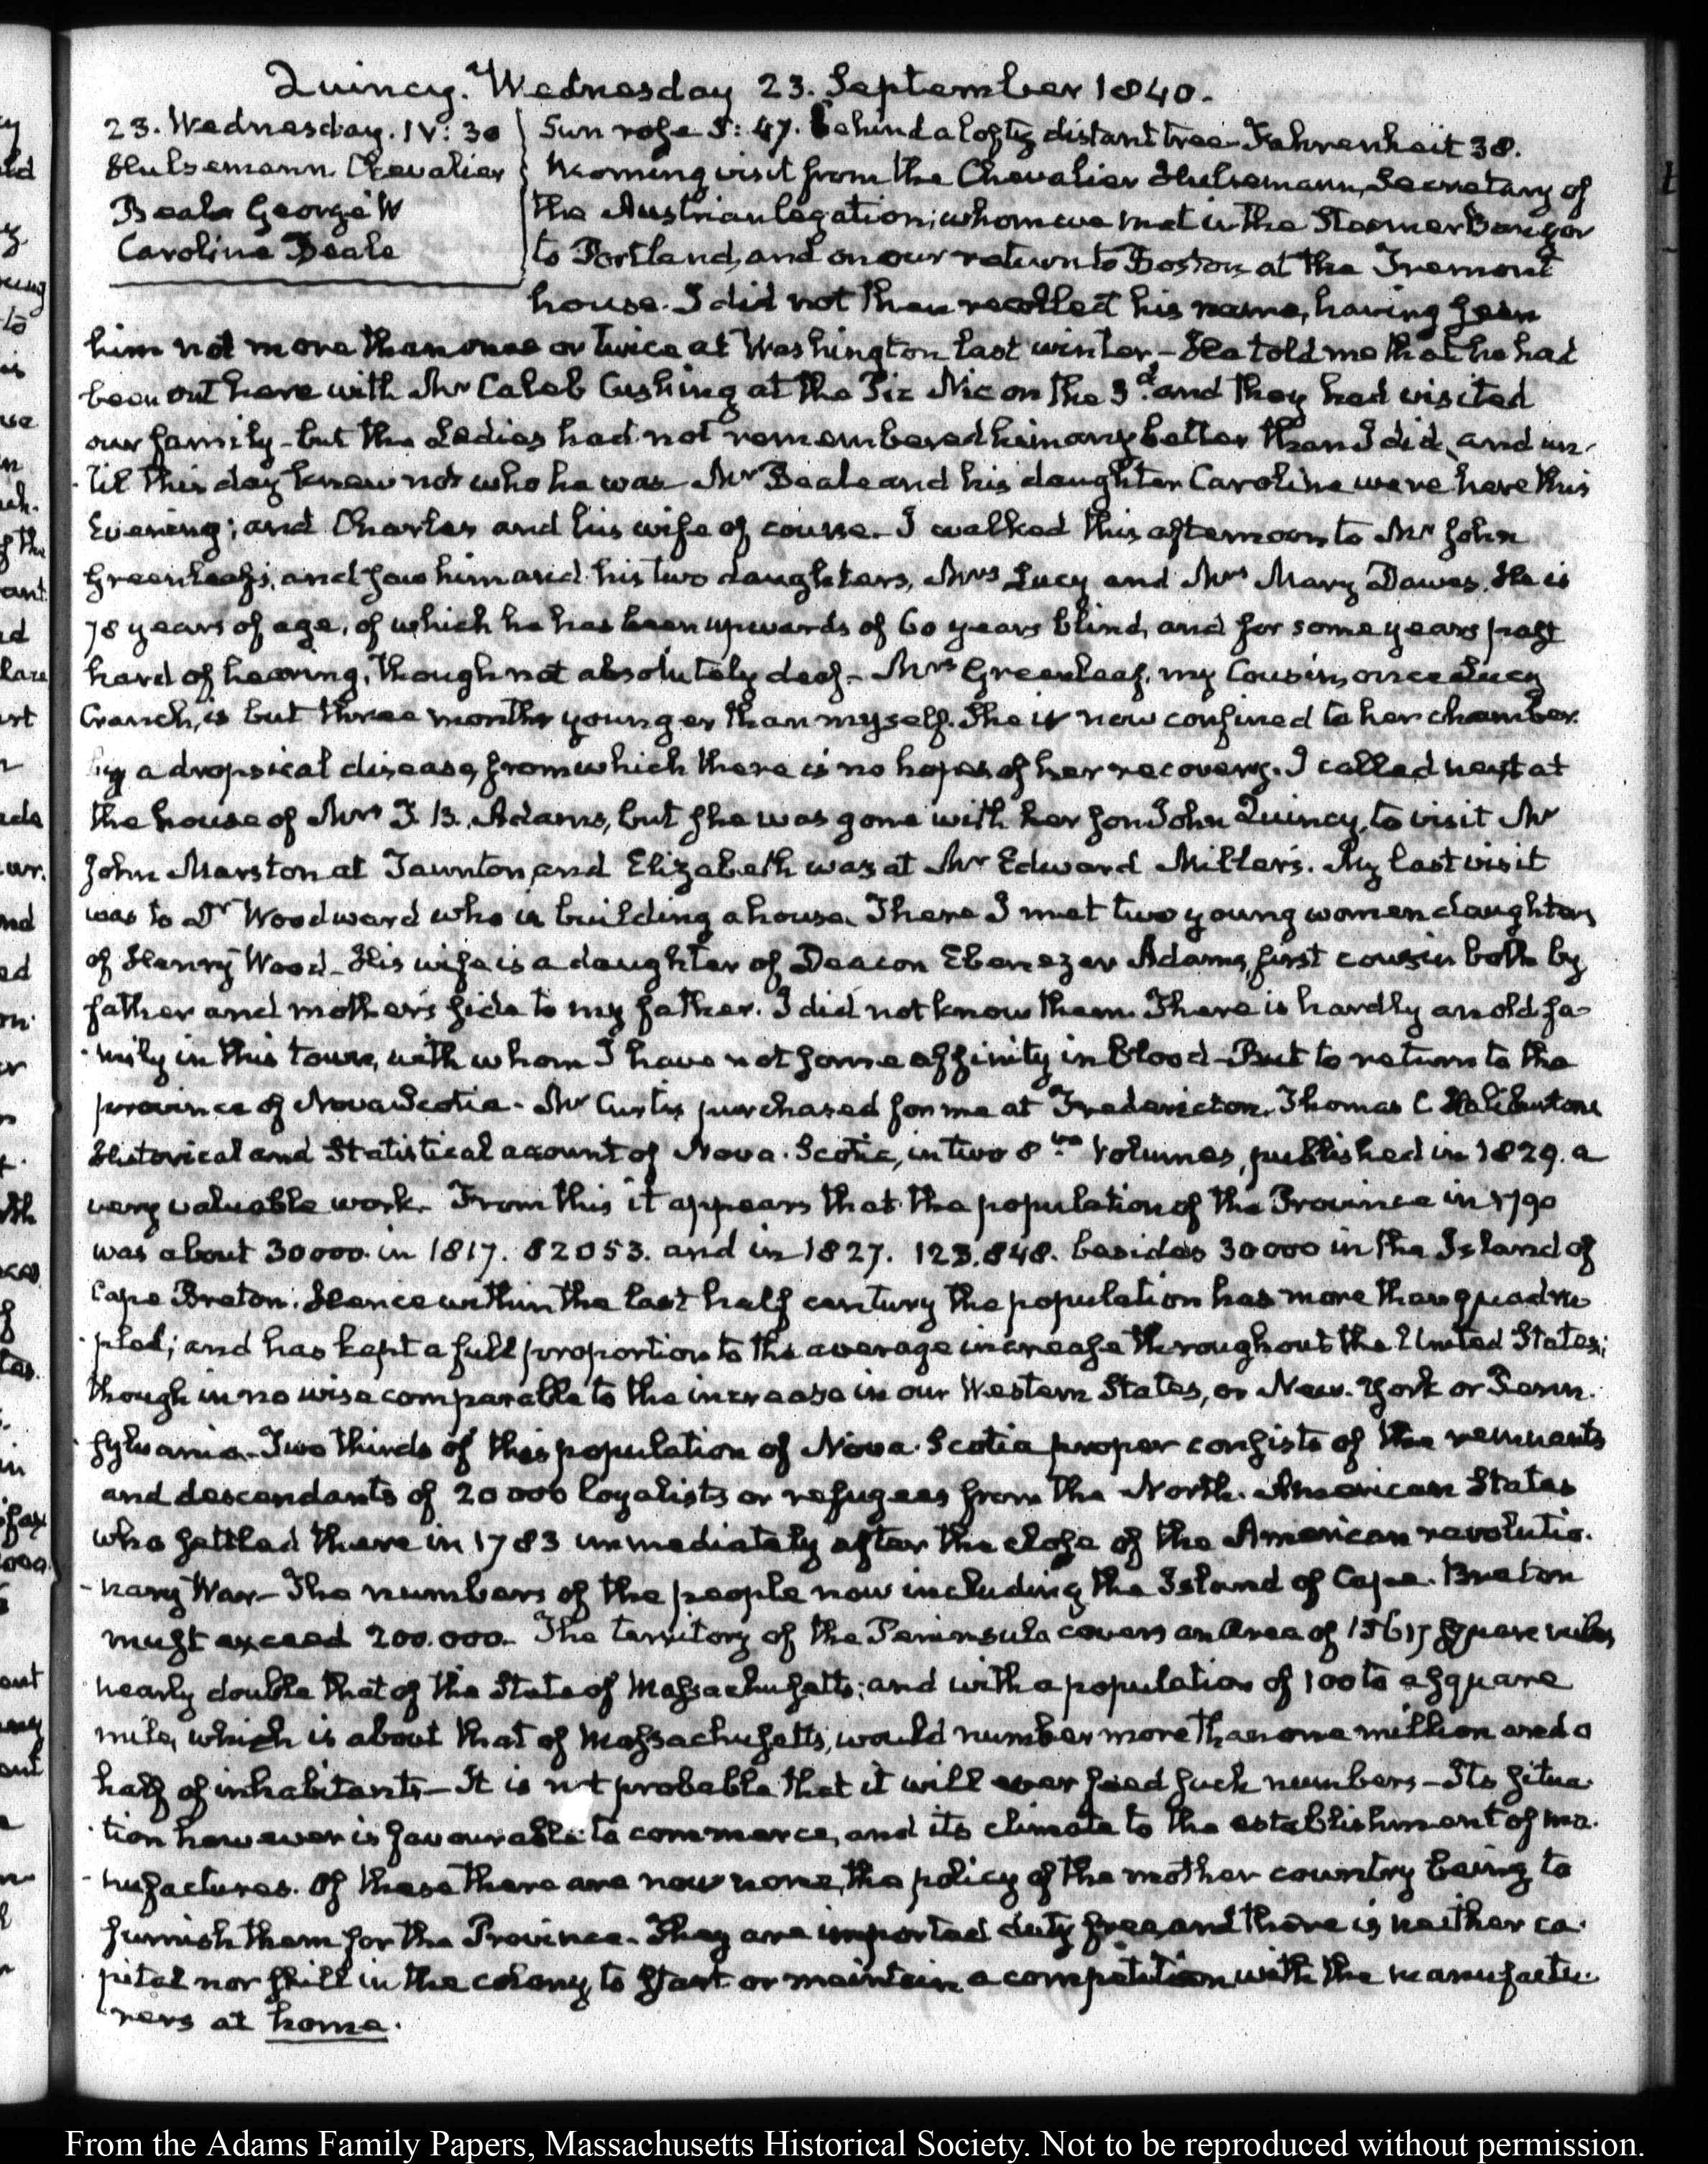 Quincy. Wednesday 23. September 1840.
23. Wednesday. IV: 30
Hulsemann. Chevalier
Beale George W
Caroline Beale
Sun rose 5: 47. behind a lofty distant tree. Fahrenheit 38.
Morning visit from the Chevalier Hulsemann, Secretary of
the Austrian legation; whom we met in the Steamer Bangor
to Portland, and on our return to Boston, at the Tremont
house. I did not then recollect his name, having seen
him not more than once or twice at Washington last winter – He told me that he had
been out here with Mr Caleb Cushing at the Pic Nic on the 3d. and they had visited
our family – but the Ladies had not remembered him any better than I did, and un-
-til this day knew not who he was – Mr Beale and his daughter Caroline were here this
Evening; and Charles and his wife of course. I walked this afternoon to Mr John
Greenleaf's, and saw him and his two daughters, Mrs Lucy and Mrs Mary Dawes. He is
78 years of age, of which he has been upwards of 60 years blind, and for some years past
hard of hearing, though not absolutely deaf – Mrs Greenleaf, my Cousin, once Lucy
Cranch, is but three months younger than myself. She is now confined to her chamber
by a dropsical disease, from which there is no hopes of her recovery. I called next at
the house of Mrs T. B. Adams, but she was gone with her son John Quincy, to visit Mr
John Marston at Taunton, and Elizabeth was at Mr Edward Miller's. My last visit
was to Dr Woodward who is building a house. There I met two young women daughters
of Henry Wood – His wife is a daughter of Deacon Ebenezer Adams, first cousin both by
father and mother's side to my father. I did not know them. There is hardly an old fa-
-mily in this town, with whom I have not some affinity in blood – But to return to the
province of Nova Scotia – Mr Curtis purchased for me at Fredericton, Thomas C Haliburtons
Historical and Statistical account of Nova-Scotia, in two 8vo Volumes, published in 1829. a
very valuable work. From this it appears that the population of the Province in 1790
was about 30000. in 1817. 82053. and in 1827. 123.848. besides 30000 in the Island of
Cape Breton. Hence within the last half century the population has more than quadru
-pled; and has kept a full proportion to the average increase throughout the United States;
though in no wise comparable to the increase in our Western States, or New-York or Penn-
-sylvania – Two thirds of this population of Nova-Scotia proper consists of the remnants
and descendants of 20000 loyalists or refugees from the North-American States
who settled there in 1783 immediately after the close of the American revolutio-
-nary War – The numbers of the people now including the Island of Cape-Breton
must exceed 200.000. The territory of the Peninsula covers an Area of 15617 square miles
nearly double that of the State of Massachusetts; and with a population of 100 to a square
mile, which is about that of Massachusetts, would number more than one million and a
half of inhabitants – It is not probable that it will ever feed such numbers – Its situa-
-tion however is favourable to commerce, and its climate to the establishment of ma-
-nufactures. Of these there are now none, the policy of the mother country being to
furnish them for the Province. They are imported duty free and there is neither ca-
pital nor skill in the colony to start or maintain a competition with the manufactu-
-rers at home.
From the Adams Family Papers, Massachusetts Historical Society. Not to be reproduced without permission.